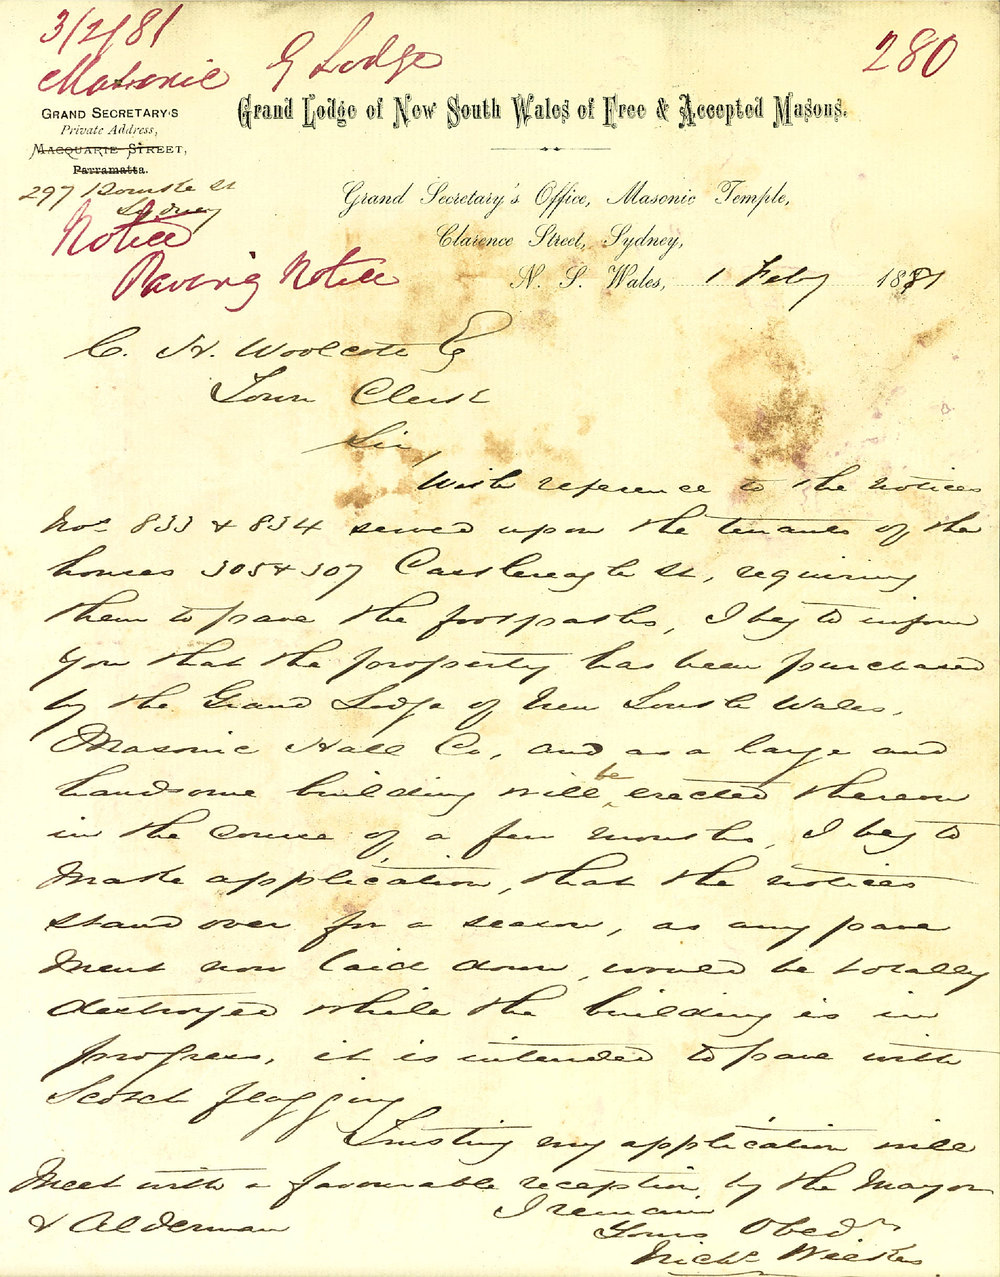 3/2/81
Masonic G Lodge
280
GRAND SECRETARY'S
Private Address,
MACQUARIE STREET,
Parramatta.
297 Bourke St
Sydney
Grand Lodge of New South Wales of Free & Accepted Masons.
Grand Secretary's Office, Masonic Temple,
Clarence Street, Sydney,
N. S. Wales, 1 Feby 1881
Notice
Paving Notice
C. H. Woolcott Esq
Town Clerk
Sir,
With reference to the notices
Nos 833 & 834 served upon the tenants of the
houses 305 & 307 Castlereagh St, requiring
them to pave the footpaths, I beg to inform
you that the property has been purchased
by the Grand Lodge of New South Wales,
Masonic Hall Co, and as a large and
handsome building will be erected thereon
in the course of a few months, I beg to
make application, that the notices
stand over for a season, as any pave
ment now laid down, would be totally
destroyed while the building is in
progress, it is intended to pave with
Scotch flagging
Trusting my application will
meet with a favourable reception by the Mayor
& Alderman
I remain
Yours Obedt
Nichs Weekes